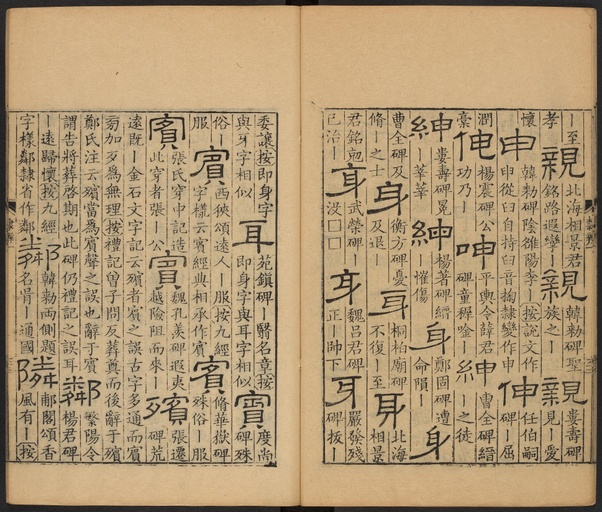 —至親北海相景君親韓勑碑聖親婁壽碑
孝銘路遐戀—族之—見—愛
懷申韓勑碑陰雒陽李—按說文作伸任伯嗣
申從臼自持臼音掬隸變作申碑—屈
潤伸楊震碑公呻平輿令薛君紳曹全碑縉
橐功乃—碑童穉唫—之徒
紳婁壽碑冕紳楊著碑縉身鄭固碑遭身
—莘莘—惟傷命隕—
曹全碑及身衡方碑憂身桐柏廟碑身北海
脩—之士及退—不復—至相景
君銘剋身武榮碑—身魏呂君碑身嚴發殘
已治—没□□正—帥下碑抜—
委讓按即身字耳苑鎮碑—醫名章按賓度尚
與牙字相似即身字與耳字相似碑殊
俗—賓西狹頌遠人—服按九經賓脩華嶽碑
服字樣云賓經典相承作賓殊俗—服
賓張氏穿中記造賓魏孔羨碑遐夷殯張遷
此穿者張—公越險阻而来—碑荒
遠既—金石文字記云殯者賓之誤古字多通而賓
旁加歹爲無理按禮記曾子問反葬奠而後辭于殯
鄭氏注云殯當爲賓聲之誤也辭于賓鄰繁陽令
謂告將葬啓期也此碑仍禮記之誤耳楊君碑
—遠歸懷按九經鄰韓勑兩側題隣郙閣頌香
字樣鄰隸省作鄰名胥—通國風有—按